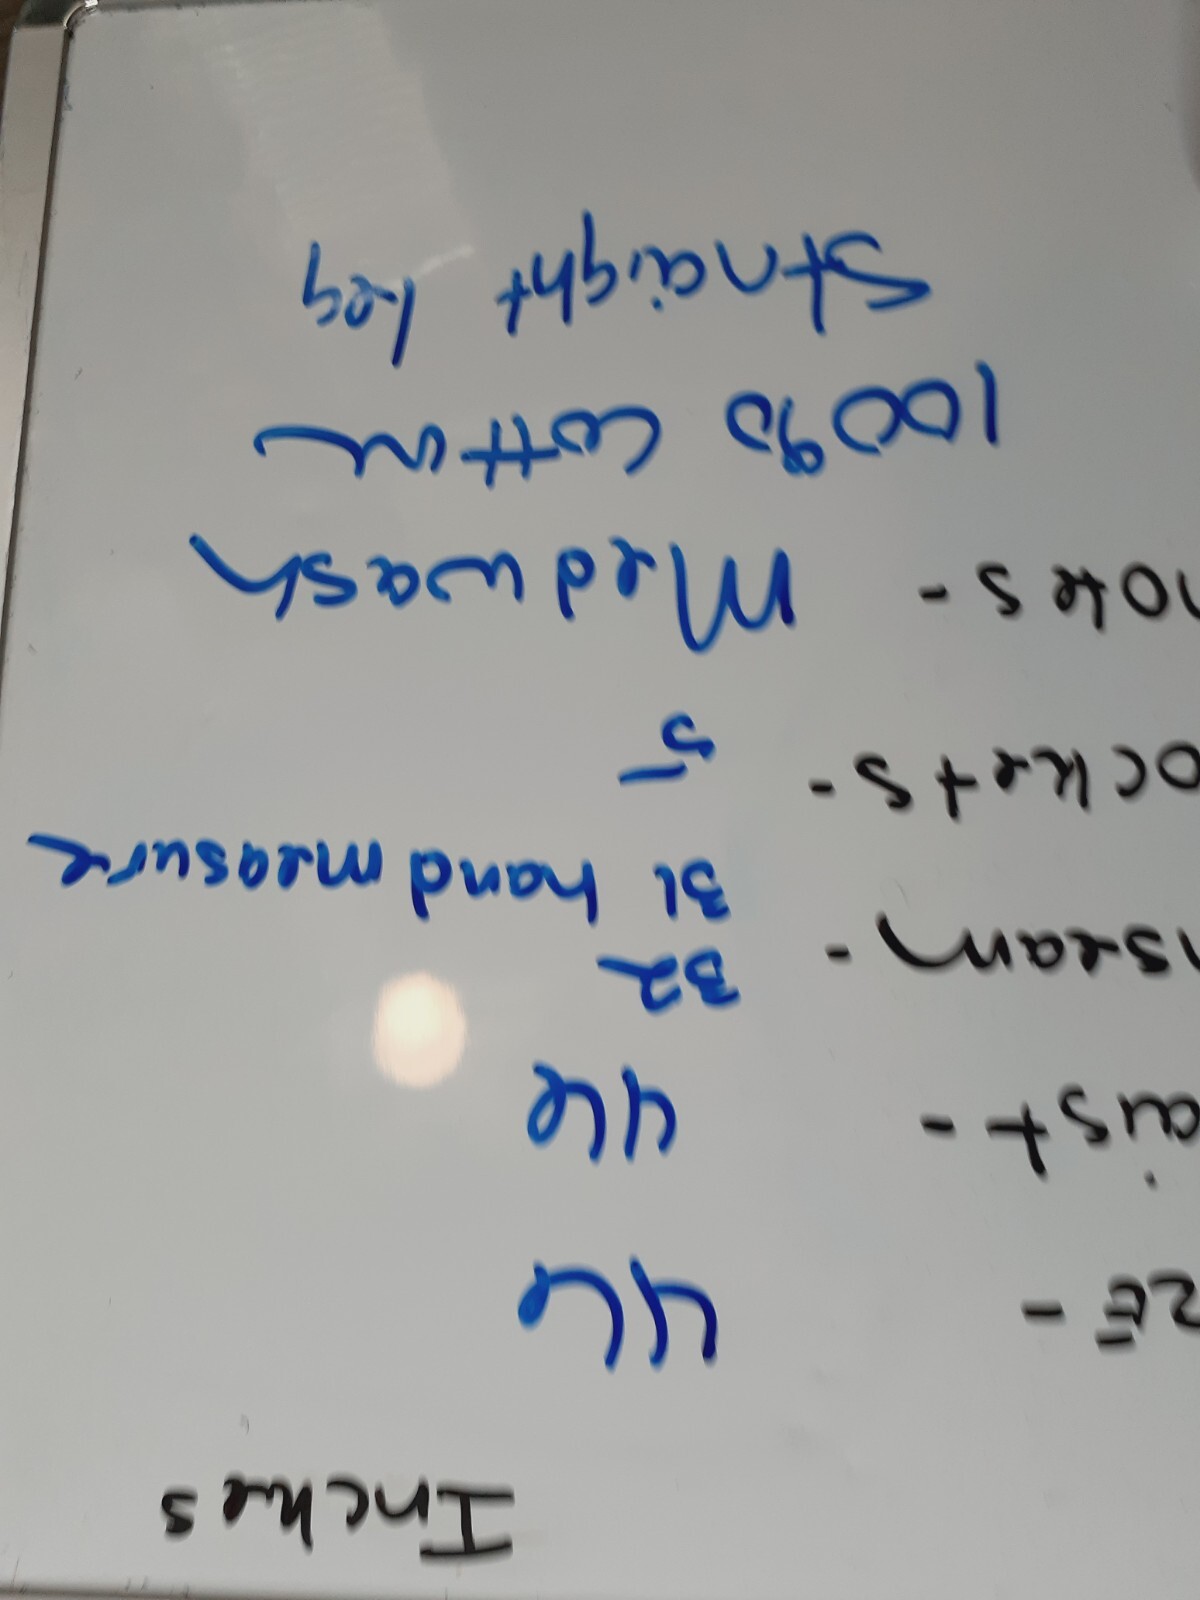 Inches
ZE - 46
aist - 46
nseam - 32
31 hand measure
ockets - 5
notes - Med wash
100% cotton
Straight Leg